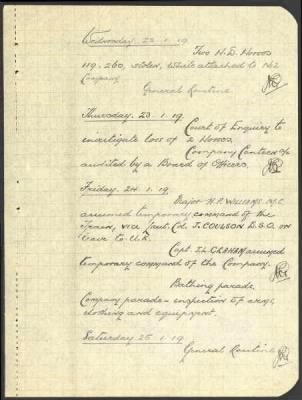 Wednesday 22.1.19.
Two H.D. Horses
119, 260, stolen, whilst attached to No 2
Company
General Routine
Thursday. 23.1.19.
Court of Enquiry to
investigate loss of 2 Horses.
Company Canteen a/c
audited by a Board of Officers.
Friday. 24.1.19.
Major H.P. WILLIAMS M.C.
assumed temporary command of the
Train, vice Lieut. Col. J. COULSON D.S.O. on
leave to U.K.
Capt. GRAHAM assumed
temporary command of the Company.
Bathing parade.
Company parade - inspection of arms,
clothing and equipment.
Saturday 25.1.19
General Routine